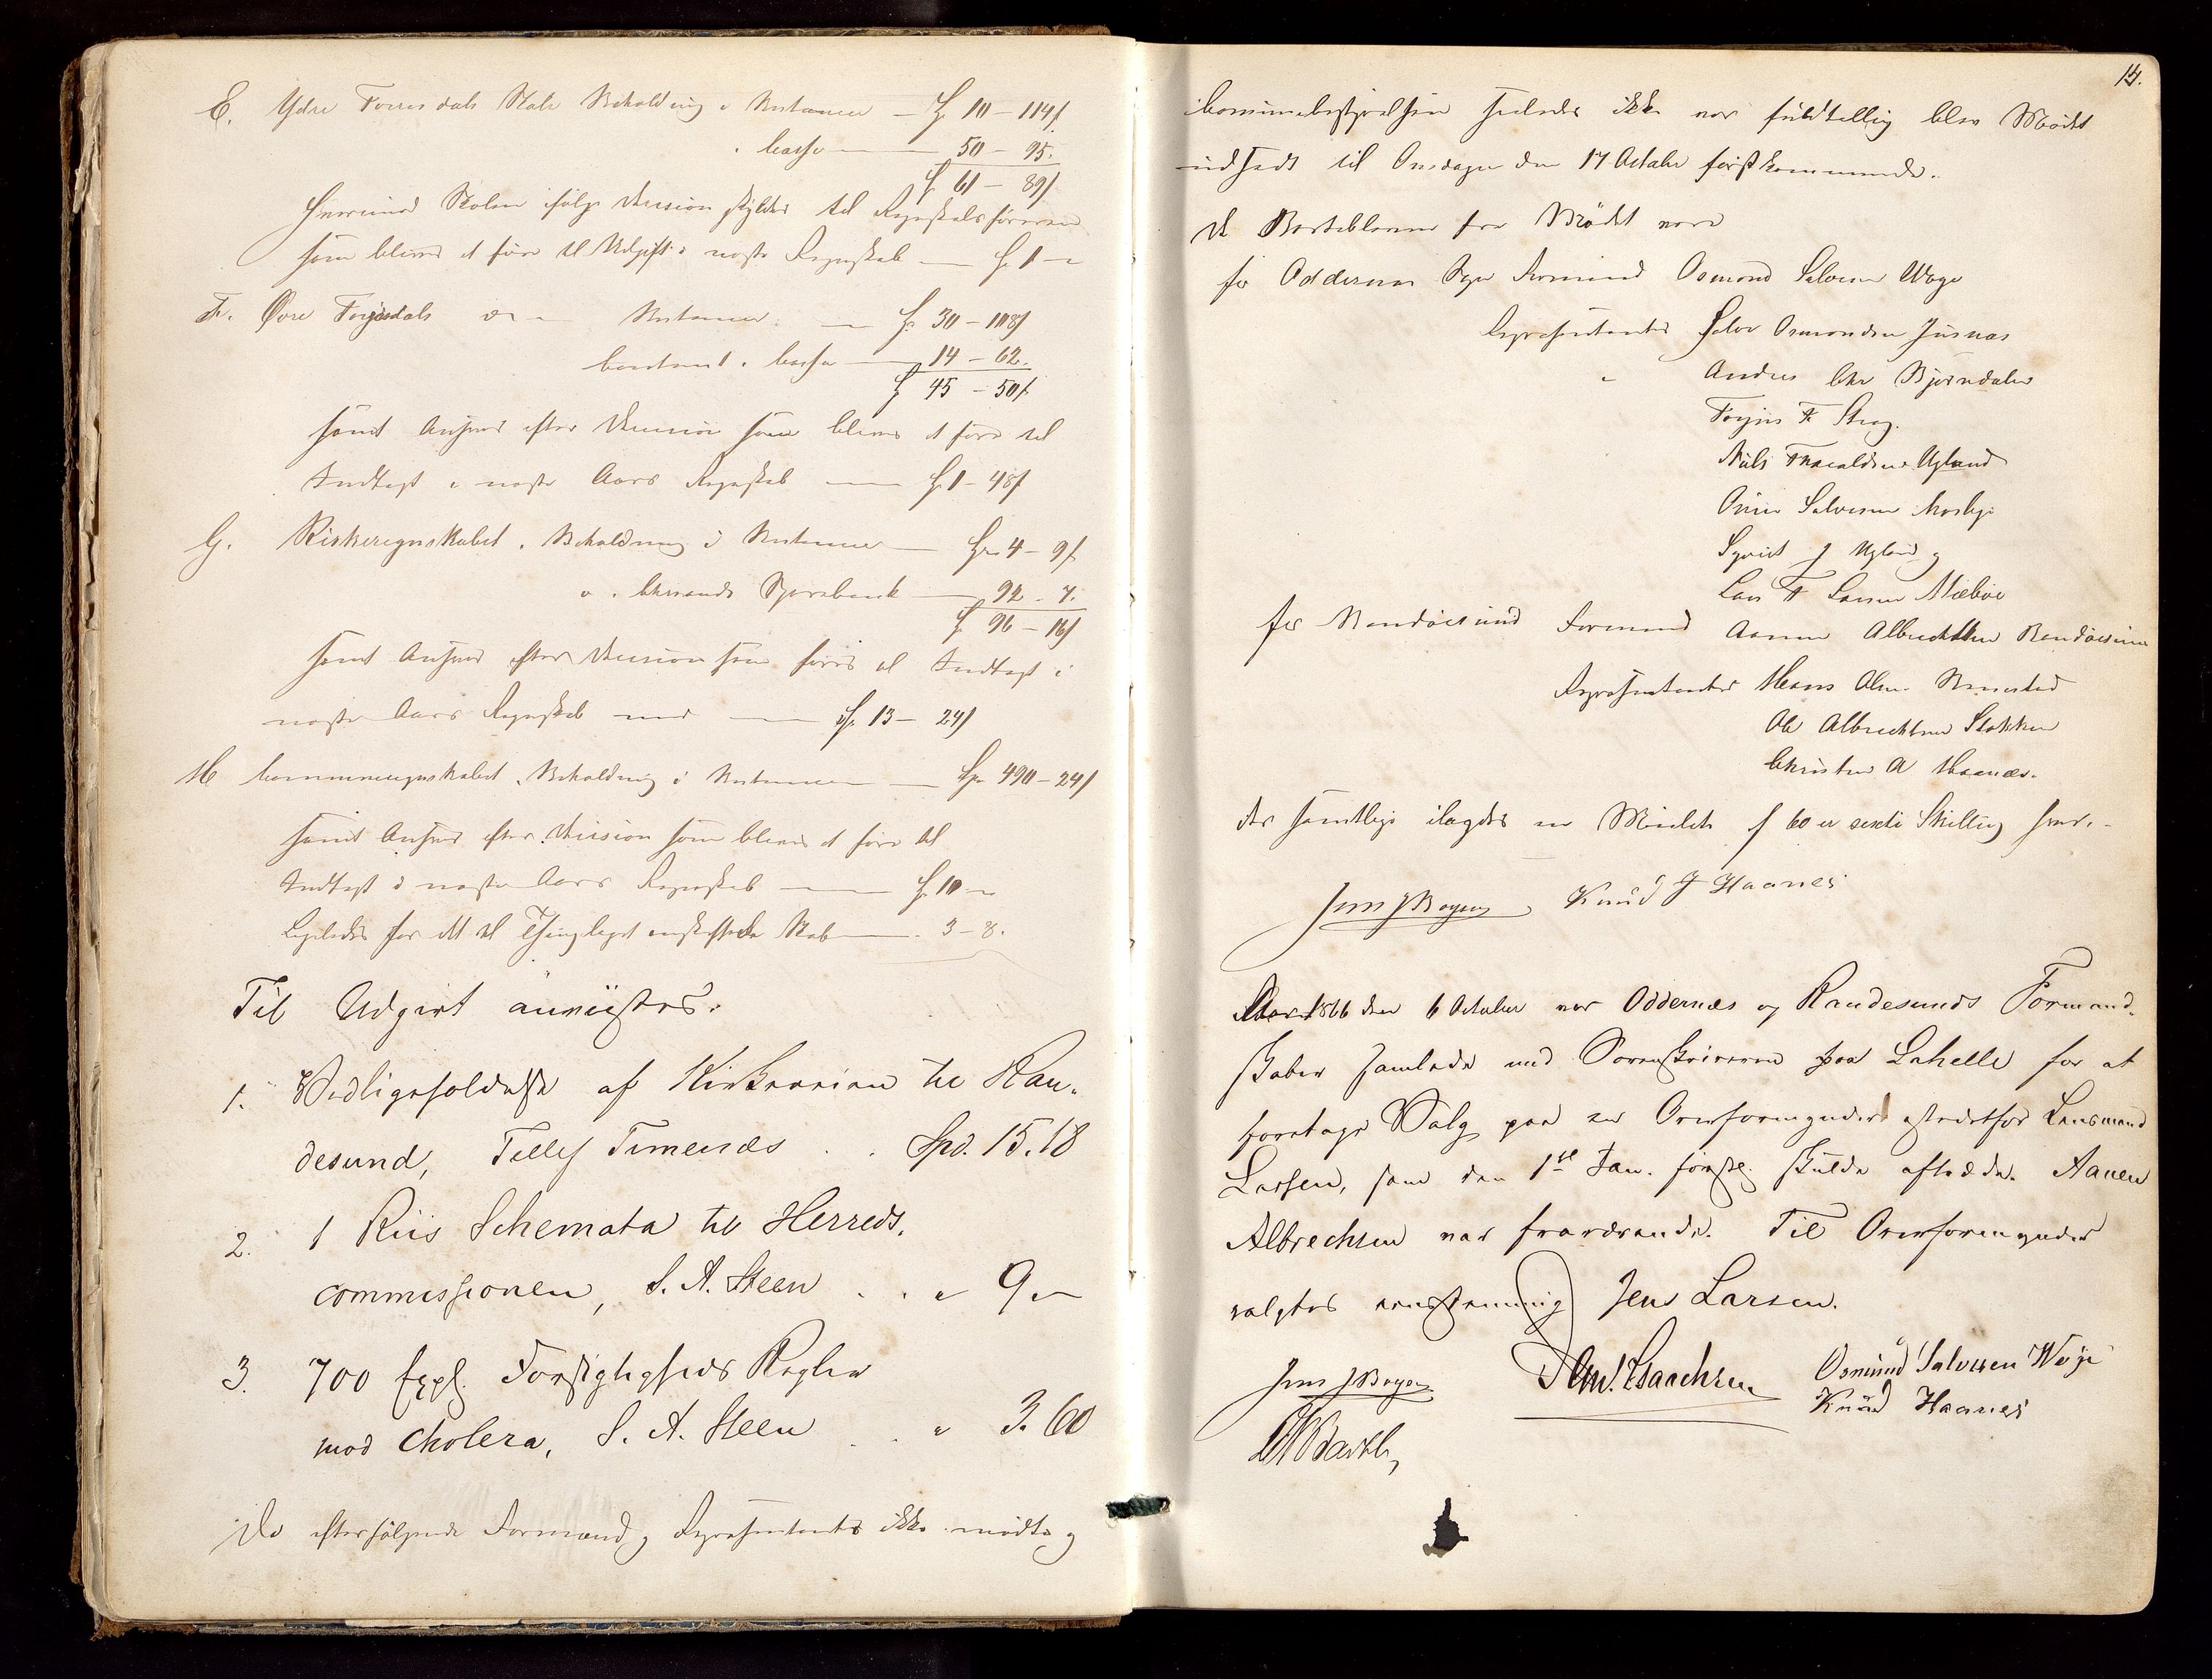 E. Ydre Torrisdals Skole Beholdning i Restancer — Sp 10 – 114 s
i Casse — 50 – 95.
Sp 61 – 89 s
hvorimod Skolen ifølge Decision skylder til Regnskabsføreren
som bliver at føre til Udgift i næste Regnskab — Sp 1 –
F. Øvre Torrisdals Restancer — Sp 30 – 108 s
contant i Casse — 14 – 62.
Sp 45 – 50 s
samt Ansvar efter Decision som bliver at føre til
Indtægt i næste Aars Regnskab — Sp 1 – 48 s
G. Kirkeregnskabet, Beholdning i Restancer — Sp 4 – 9 s
i Chrsands Sparebank — 92 – 7.
Sp 96 – 16 s
samt Ansvar efter Decision som føres til Indtægt i
næste Aars Regnskab med — Sp 13 – 24 s
H Communeregnskabet, Beholdning i Restancer — Sp 490 – 24 s
samt Ansvar efter Decision som bliver at føre til
Indtægt i næste Aars Regnskab — Sp 10 –
Ligeledes for et til Thinglaget anskaffede Skab — 3 – 8.
Til Udgivt anvistes:
1. Vedligeholdelse af Kirkeveien til Ran-
desund, Tellef Timenæs . . Spd. 15. 18
2. 1 Riis Schemata til Herreds-
commissionen, S. A. Steen . . " 9 "
3. 700 Expl. Forsigtigheds Regler
mod Cholera, S. A. Steen . . " 3. 60
Da efterfølgende Formænd og Repræsentanter ikke mødte og
15.
Communebestyrelsen saaledes ikke var fuldtallig blev Mødet
udsadt til Onsdagen den 17 Octobr førstkommende.
De Borteblevne fra Mødet vare
for Oddernes Sogn Formand Osmond Salvesen Wage
Repræsentanter Salve Osmondsen
" Anders Chr Bjørndalen
F
Niels Tharaldsen Ugland
Salvesen Mosby
Syvert J Ugland og
Lars T Larsen Mæbøe
for Randøesund Formand Aanen Albrechtsen Randøesund
Repræsentanter Hans Olsen
Ole Albrechtsen Stokken
Christen A Haanæs.
der samtlige ilagdes en Mulct af 60 er sexti Skilling hver. –
Jens J Boysen Knud J Haanes
Aar 1866 den 6 October var Oddernæs og Randesunds Formand-
skaber samlede med Sorenskriveren paa Lahelle for at
foretage Valg paa en Overformynder istedetfor Lensmand
Larsen, som den 1ste Jan. førstk. skulde aftræde. Aanen
Albrechsen var fraværende. Til Overformynder
valgtes eenstemmig Jens Larsen.
Jens J Boysen And. Isaachsen Osmund Salvesen Woje
Knud Haanes
Barth,